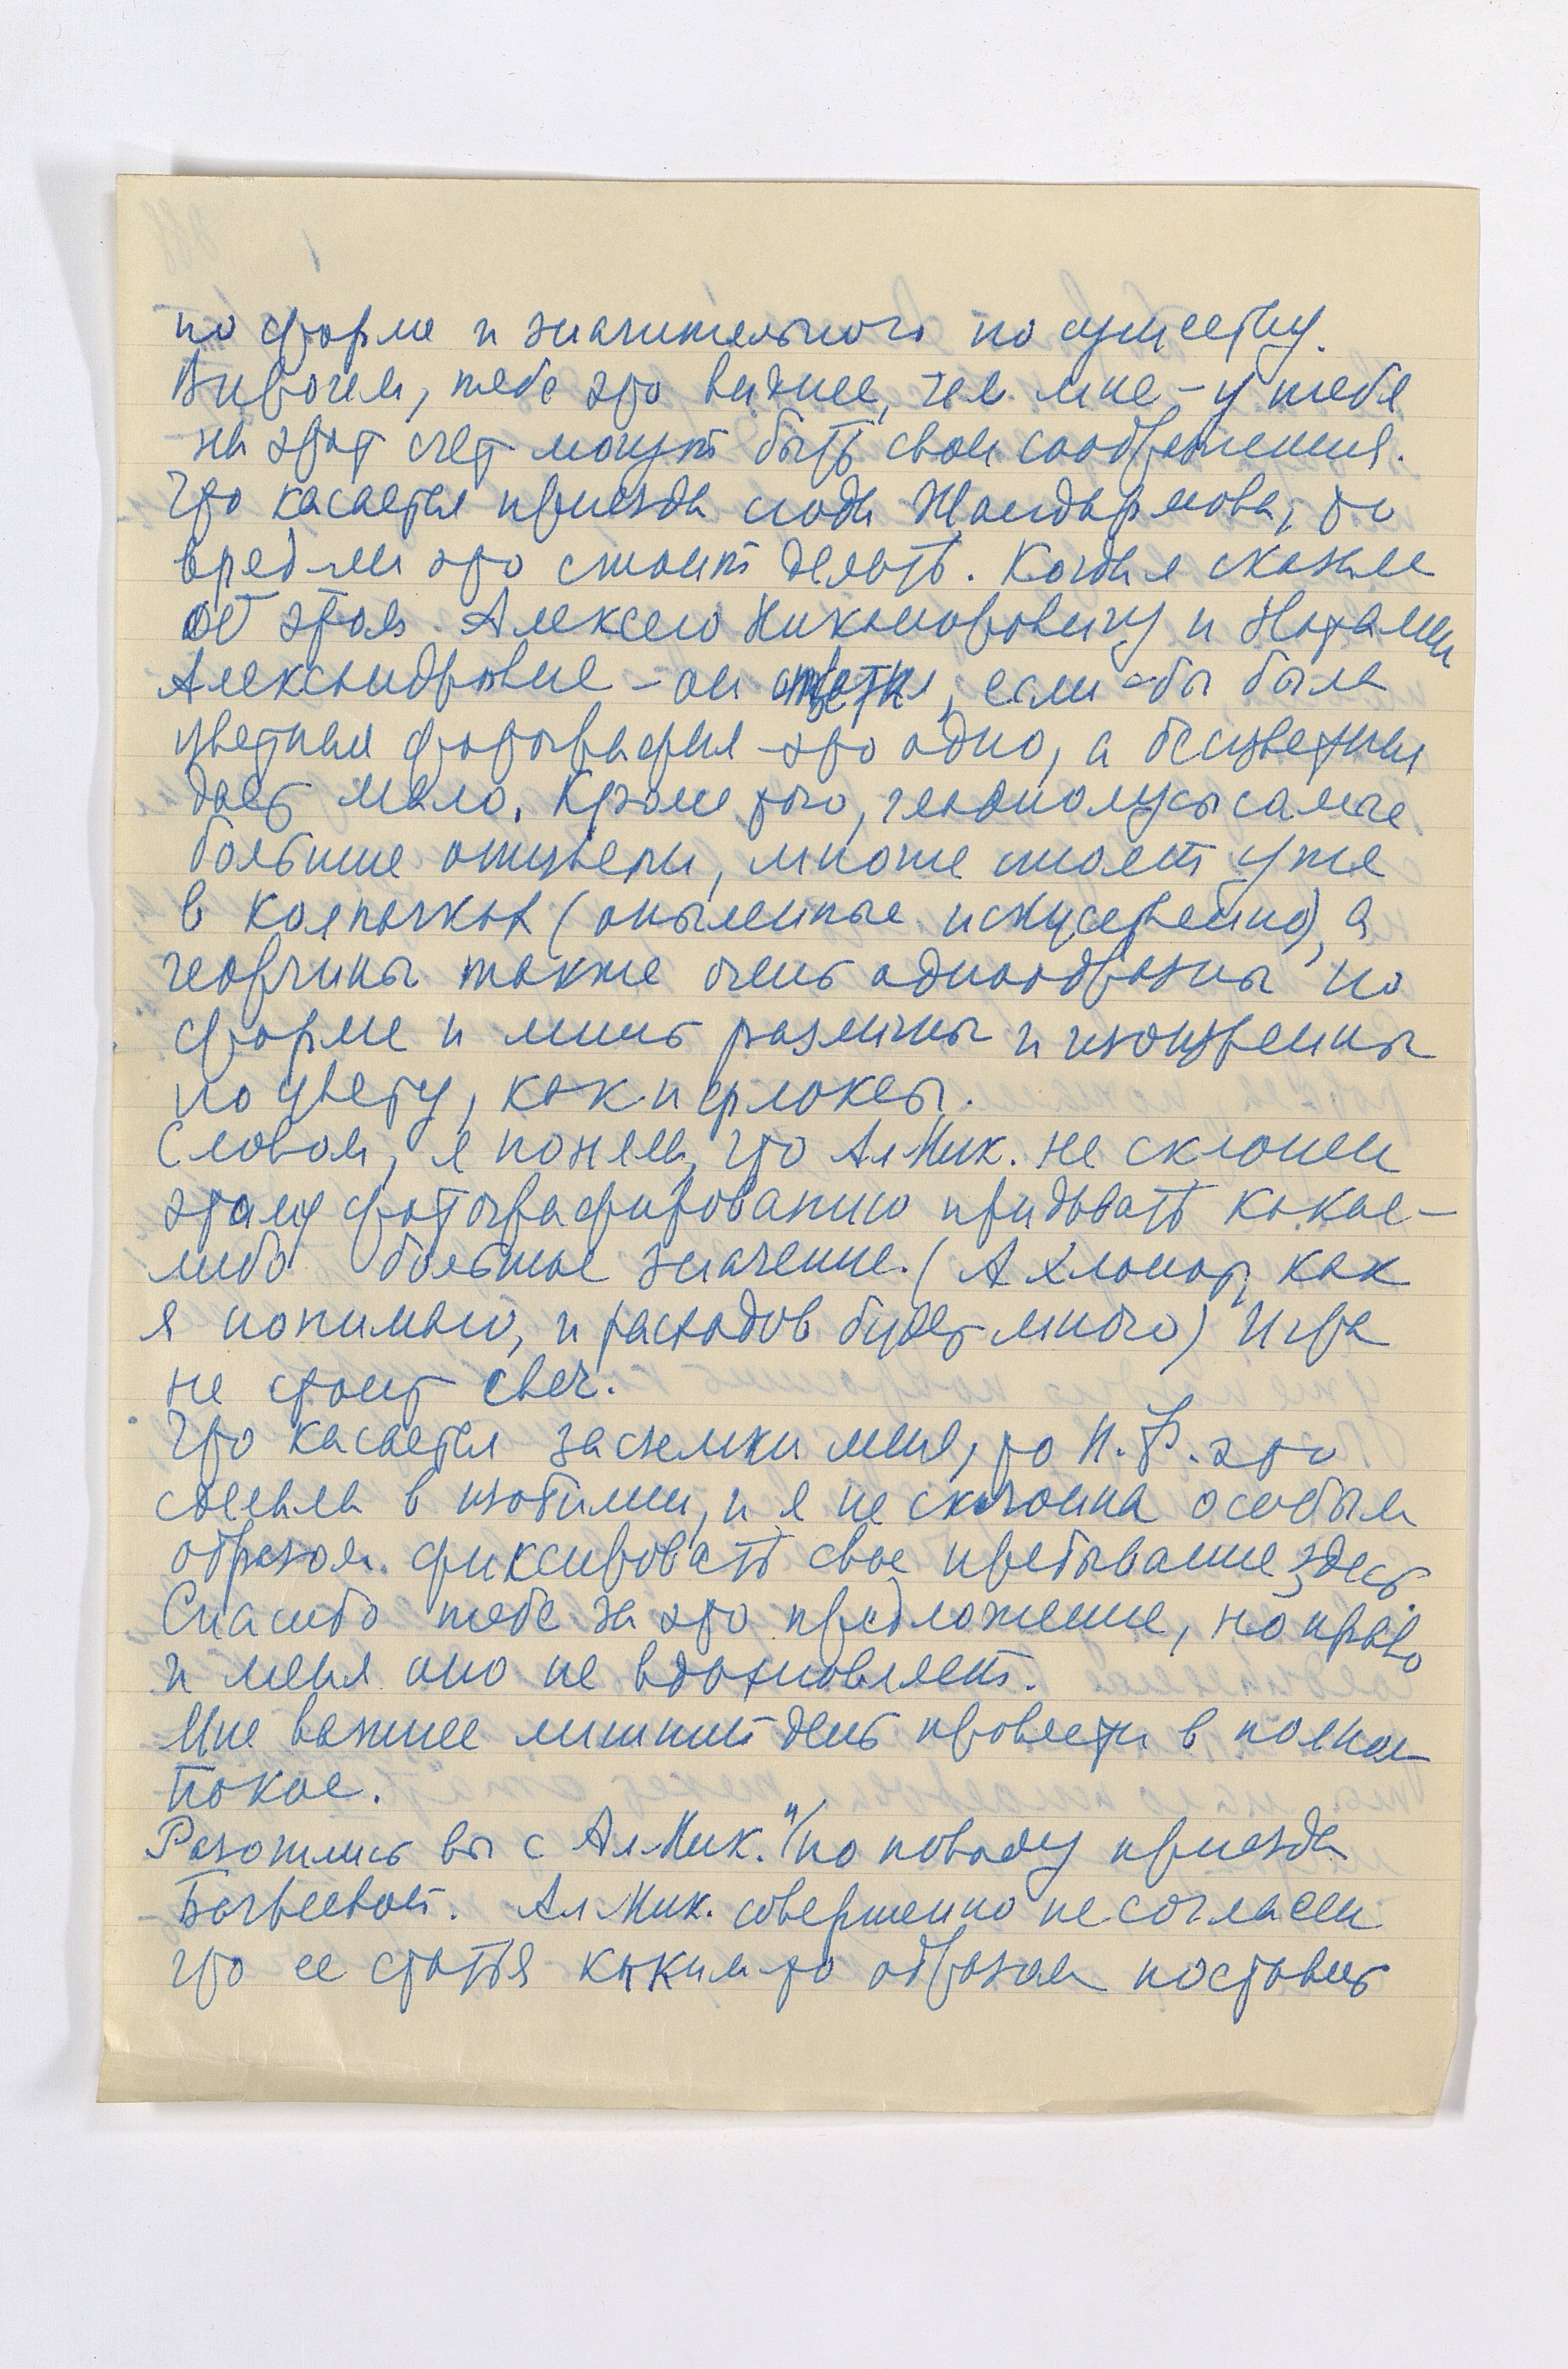 по форме и значительного по существу.
Впрочем, тебе это виднее, чем мне – у тебя
на этот счет могут быть свои соображения.
Что касается приезда сюда Жандармова, то
вряд ли это стоит делать. Когда я сказала
об этом Алексею Никаноровичу и Наталии
Александровне – он ответил, если бы была
цветная фотография – это одно, а бесцветная
дает мало. Кроме того, гладиолусы самые
большие отцвели, многие стоят уже
в колпачках (опыленные искусственно), а
георгины также очень однообразны по
форме и лишь различны и изощренны
по цвету, как и флоксы.
Словом, я поняла, что Ал Ник. не склонен
этому фотографированию придавать какое-
либо большое значение. (А хлопот, как
я понимаю, и расходов будет много) Игра
не стоит свеч.
Что касается засъемки меня, то И.Ф. это
сделала в изобилии, и я не склонна особым
образом фиксировать свое пребывание здесь
Спасибо тебе за это предложение, но право
и меня оно не вдохновляет.
Мне важнее лишний день провести в полном
покое.
Разошлись вы с Ал Ник. и по поводу приезда
Ал Ник. совершенно не согласен
что ее статья каким-то образом поставит